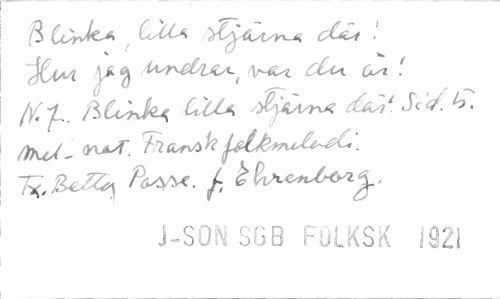 Blinka, lilla stjärna där!
Hur jag undrar, var du är!
N. 7. Blinka lilla stjärna där! Sid. 5.
mel-not. Fransk folkmelodi.
Tx. Betty Posse. f. Ehrenborg.
J-SON SGB FOLKSK 1921